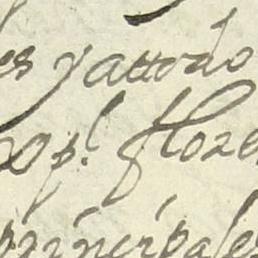 es y attodo
op.l floze
principales